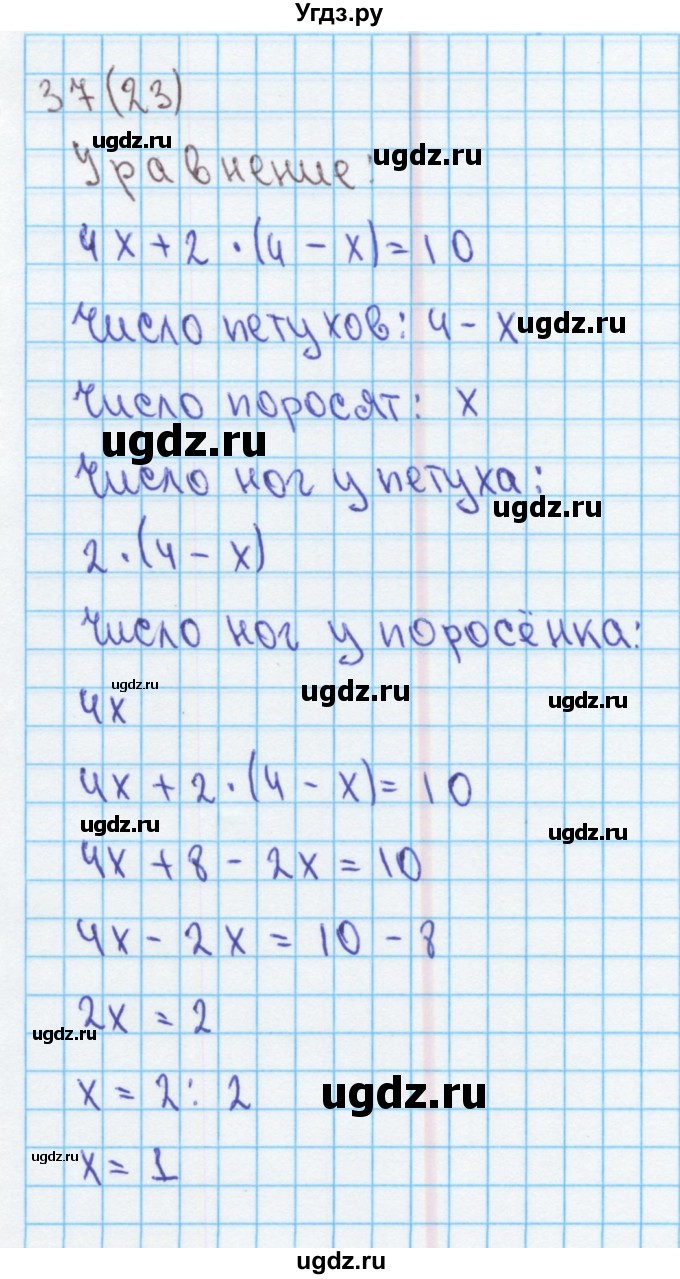 Угдз.ру
37(23)
ugdz.ru
Уравнение:
ugdz.ru
4x + 2 · (4 - x) = 10
Число петухов: 4 - x
ugdz.ru
Число поросят: x
ugdz.ru
Число ног у петуха:
ugdz.ru
2 · (4 - x)
Число ног у поросёнка:
ugdz.ru
ugdz.ru
ugdz.ru
4x
4x + 2 · (4 - x) = 10
ugdz.ru
ugdz.ru
4x + 8 - 2x = 10
4x - 2x = 10 - 8
2x = 2
ugdz.ru
x = 2 : 2
ugdz.ru
ugdz.ru
x = 1
ugdz.ru